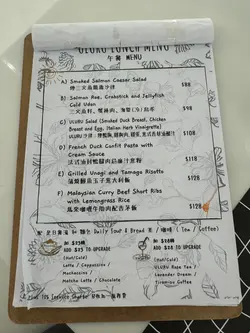 ULURU LUNCH MENU
午餐 MENU
A) Smoked Salmon Caesar Salad $88
煙三文魚凱撒沙律
B) Salmon Roe, Crabstick and Jellyfish
Cold Udon $98
三文魚籽、蟹柳、海蜇(冷)烏冬
C) ULURU Salad (Smoked Duck Breast, Chicken
Breast and Egg, Italian Herb Vinaigrette)
ULURU 沙律 $108
D) French Duck Confit Pasta with
Cream Sauce $118
法式油封鴨腿忌廉汁意粉
E) Grilled Unagi and Tamago Risotto
蒲燒鰻魚玉子意大利飯 $128
F) Malaysian Curry Beef Short Ribs
with Lemongrass Rice $128
馬來咖喱牛肋肉配香茅飯
Daily Soup & Bread / (Tea / Coffee)
ADD $25 TO UPGRADE
(Hot/Cold)
Latte / Cappuccino /
Mochaccino /
Matcha Latte / Chocolate
ADD $28 TO UPGRADE
(Hot/Cold)
ULURU Rose Tea /
Lavender Dream /
Tiramisu Coffee
10% Service Charge